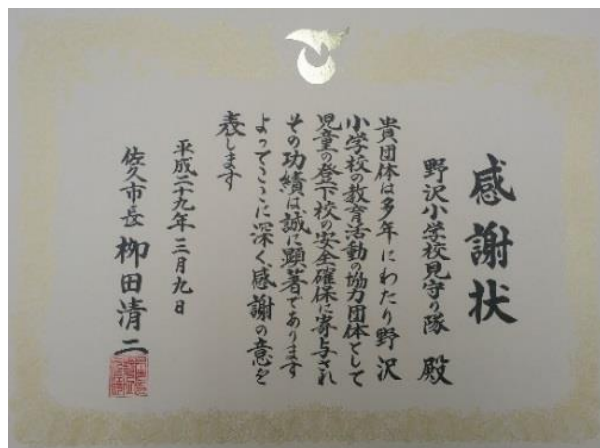 感謝状
野沢小学校見守り隊 殿
貴団体は多年にわたり野沢
小学校の教育活動の協力団体として
児童の登下校の安全確保に寄与され
その功績は誠に顕著であります
よってここに深く感謝の意を
表します
平成二十九年三月九日
佐久市長 柳田清二